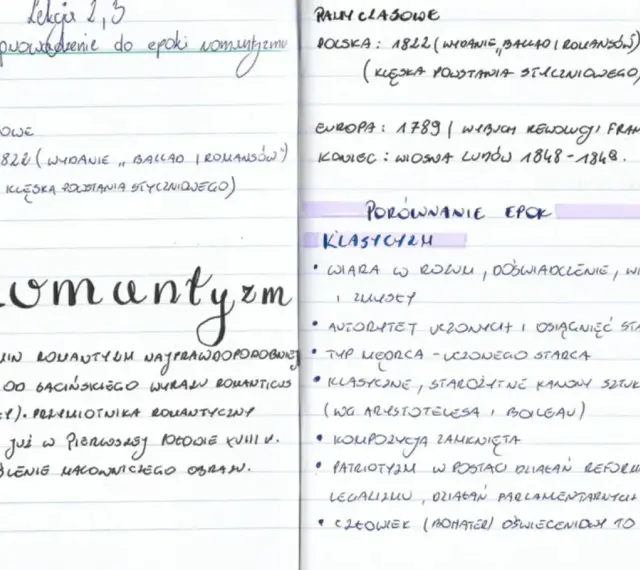 Lekcja 2, 3
prowadzenie do epoki romantyzmu
OWE
822 (WYDANIE „BALLAD I ROMANSÓW")
KLĘSKA POWSTANIA STYCZNIOWEGO)
Romantyzm
MIN ROMANTYZM NAJPRAWDOPODOBNIEJ
OD ŁACIŃSKIEGO WYRAZU ROMANTICUS
). PRZYMIOTNIKA ROMANTYCZNY
JUŻ W PIERWSZEJ POŁOWIE XVIII W.
ŚLENIE MALOWNICZEGO OBRAZU.
RAMY CZASOWE
POLSKA: 1822 (WYDANIE „BALLAD I ROMANSÓW")
(KLĘSKA POWSTANIA STYCZNIOWEGO)
EUROPA: 1789 (WYBUCH REWOLUCJI FRAN
KONIEC: WIOSNA LUDÓW 1848-1849.
PORÓWNANIE EPOK
KLASYCYZM
• WIARA W ROZUM, DOŚWIADCZENIE, WI
I ZMYSŁY
• AUTORYTET UCZONYCH I OSIĄGNIĘĆ STA
• TYP MĘDRCA - UCZONEGO STARCA
• KLASYCZNE, STAROŻYTNE KANONY SZTUK
(WG ARYSTOTELESA I BOILEAU)
• KOMPOZYCJA ZAMKNIĘTA
• PATRIOTYZM W POSTACI DZIAŁAŃ REFORM
LEGALIZMU, DZIAŁAŃ PARLAMENTARNYCH
• CZŁOWIEK (BOHATER) OŚWIECENIOWY TO